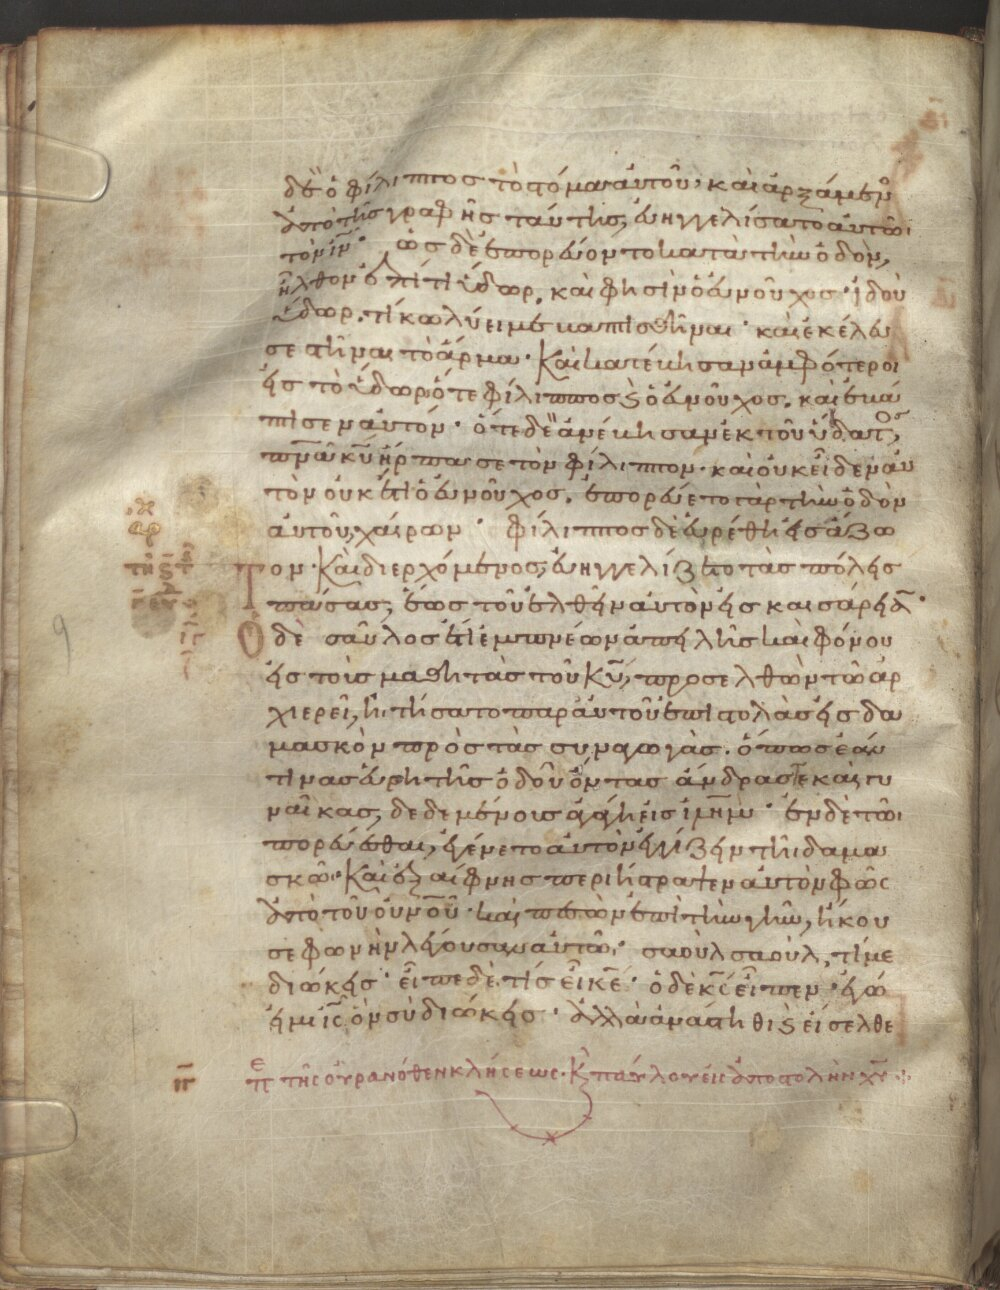 δὲ ὁ φίλιππος τὸ στόμα αὐτοῦ· καὶ ἀρξάμεν(ος)
ἀπὸ τῆς γραφῆς ταύτης, εὐηγγελίσατο αὐτῶ
τὸν ιν· ὡς δὲ ἐπορεύοντο κατὰ τὴν ὁδὸν,
ἦλθον ἐπί τι ὕδωρ. καὶ φησὶν ὁ εὐνοῦχος· ἰδοὺ
ὕδωρ. τί κωλύει με βαπτισθῆναι· καὶ ἐκέλευ
σε στῆναι τὸ ἅρμα· καὶ κατέβησαν ἀμφότεροι
εἰς τὸ ὕδωρ ὅτε φίλιππος ϗ ὁ εὐνοῦχος. καὶ ἐβά
πτισεν αὐτόν· ὅτε δὲ ἀνέβησαν ἐκ τοῦ ὕδατος,
πνα κυ ἥρπασε τὸν φίλιππον· καὶ οὐκ εἶδεν αὐ
τὸν οὐκέτι ὁ εὐνοῦχος. ἐπορεύετο γὰρ τὴν ὁδὸν
αὐτοῦ χαίρων· φίλιππος δὲ εὑρέθη εἰς ἄζω
τον· καὶ διερχόμενος, εὐηγγελίζετο τὰς πόλεις
πάσας, ἕως τοῦ ἐλθεῖν αὐτὸν εἰς καισάρειαν·
Ὁ δὲ σαῦλος ἔτι ἐμπνέων ἀπειλῆς καὶ φόνου
εἰς τοὺς μαθητὰς τοῦ κυ, προσελθὼν τῶ ἀρ
χιερεῖ, ἠτήσατο παρ' αὐτοῦ ἐπιστολὰς εἰς δα
μασκὸν πρὸς τὰς συναγωγάς. ὅπως ἐάν
τινας εὕρη τῆς ὁδοῦ ὄντας ἄνδρας τε καὶ γυ
ναῖκας, δεδεμένους ἀγάγη εἰς ιλημ· ἐν δὲ τῶ
πορεύεσθαι, ἐγένετο αὐτὸν ἐγγίζειν τῆ δαμα
σκῶ· καὶ ἐξαίφνης περιήστραψεν αὐτὸν φῶς
ἀπὸ τοῦ ουνου· καὶ πεσὼν ἐπὶ τὴν γῆν, ἤκου
σε φωνὴν λέγουσαν αὐτῶ· σαοὺλ σαούλ, τί με
διώκεις· εἶπε δὲ, τίς εἶ κε· ὁ δὲ κς εἶπεν· ἐγώ
εἰμι ις ὃν σὺ διώκεις· ἀλλὰ ἀνάστηθι ϗ εἴσελθε
πε τῆς οὐρανόθεν κλήσεως· ϗ παύλου εἰς ἀποστολὴν χυ